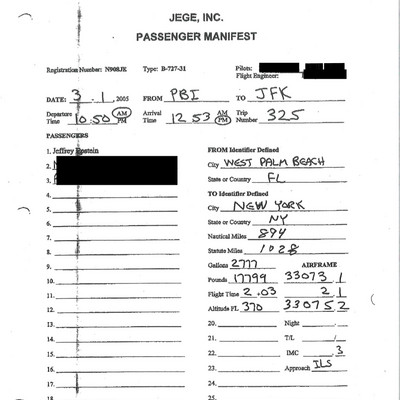 JEGE, INC.
PASSENGER MANIFEST
Registration Number: N908JK Type: B-727-31 Pilot:
Flight Engineer:
DATE: 3 . 1 , 2005 FROM PBI TO JFK
Departure Time 10:50 AM PM Arrival Time 12 53 AM PM Trip Number 325
PASSENGERS
1. Jeffrey Epstein FROM Identifier Defined
2. City WEST PALM BEACH
3. State or Country FL
4. TO Identifier Defined
5. City NEW YORK
6. State or Country NY
7. Nautical Miles 894
8. Statute Miles 1028
9. Gallons 2777 AIRFRAME
10. Pounds 17799 33073.1
11. Flight Time 2.03 2.1
12. Altitude FL 370 33075.2
13. 20. Night .
14. 21. T/L /
15. 22. IMC .3
16. 23. Approach ILS
17. 24.
18. 25.